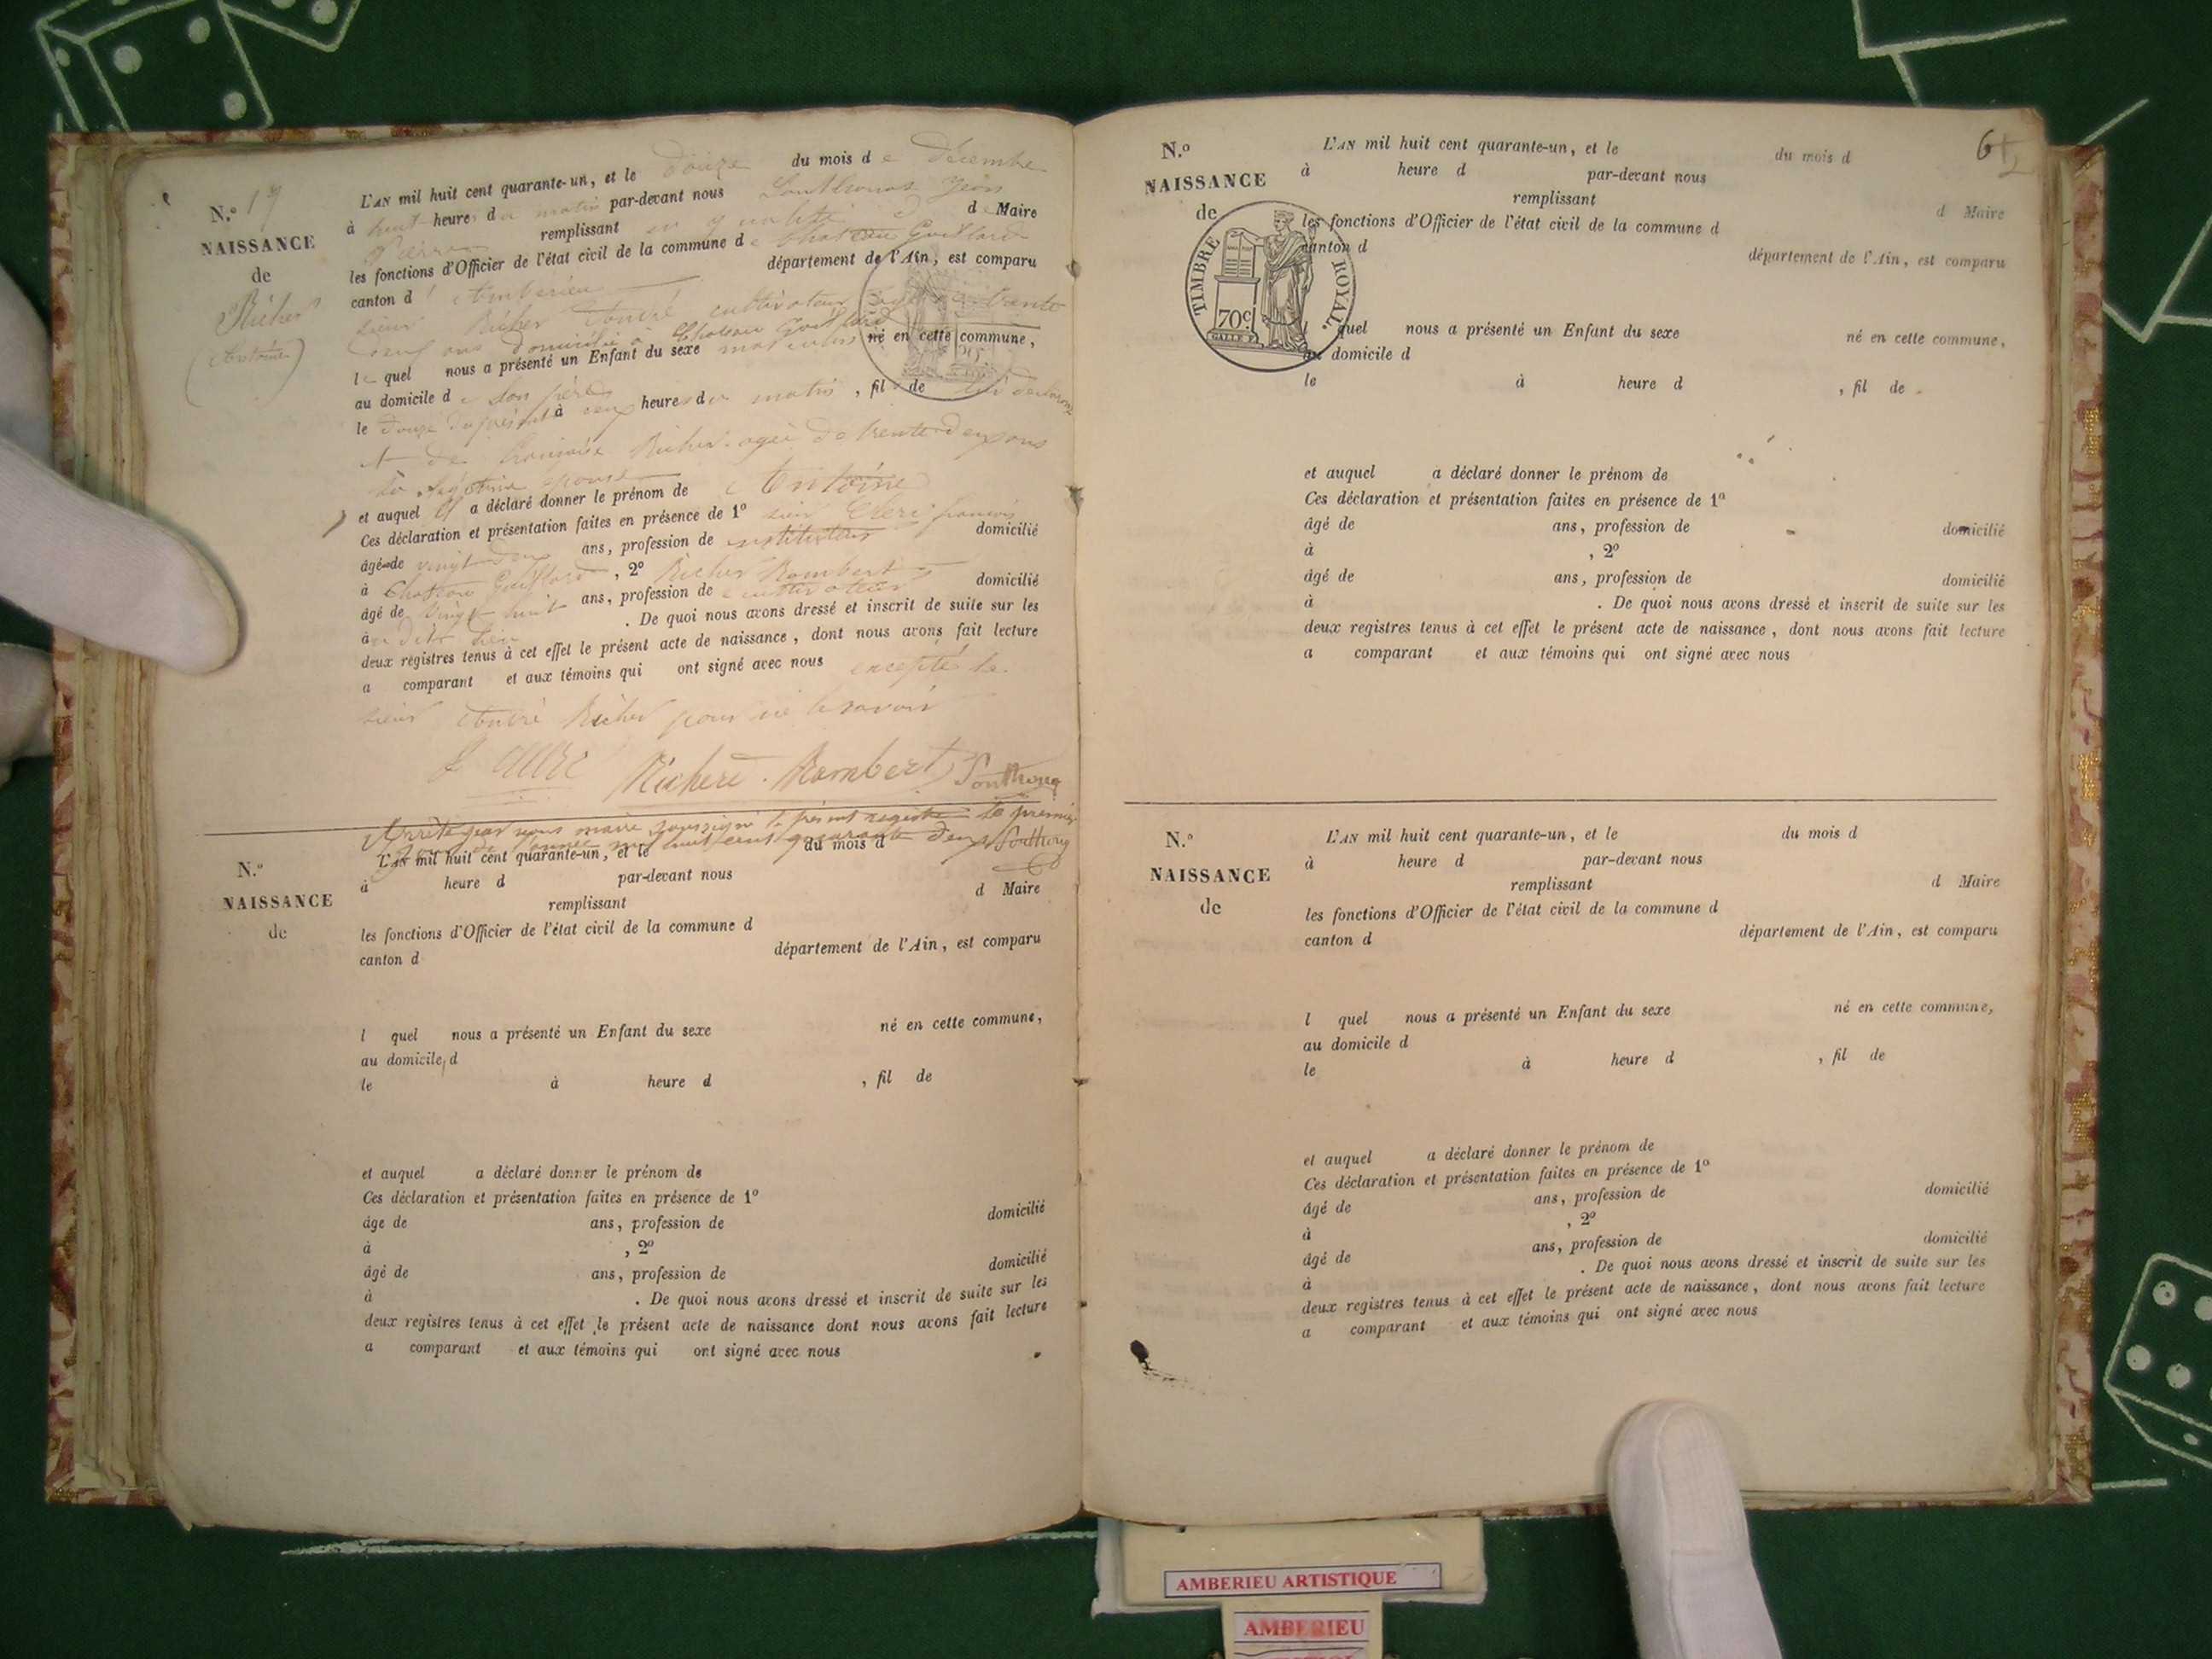 N.º 17
NAISSANCE
de
Richer
(Antoine)
L'AN mil huit cent quarante-un, et le douze du mois de décembre
à huit heures du matin par-devant nous Southonax Jean
Pierre remplissant en qualité d Maire
les fonctions d'Officier de l'état civil de la commune de Chateau Gaillard
canton d'Amberieu département de l'Ain, est comparu
sieur Richer André cultivateur agé de trente
neuf ans domicilié à Chateau Gaillard
le quel nous a présenté un Enfant du sexe masculin né en cette commune,
au domicile de son père
le douze du présent à heures du matin, fil de lui déclarant
et de Richer agée de trente deux ans
sa légitime épouse
et auquel il a déclaré donner le prénom de Antoine
Ces déclaration et présentation faites en présence de 1º sieur Clerc françois
âgé de vingt deux ans, profession de instituteur domicilié
à Chateau Gaillard, 2º Richer Rambert
âgé de vingt huit ans, profession de cultivateur domicilié
à dit lieu. De quoi nous avons dressé et inscrit de suite sur les
deux registres tenus à cet effet le présent acte de naissance, dont nous avons fait lecture
a comparant et aux témoins qui ont signé avec nous excepté le
sieur André Richer pour ne le savoir
Richere Rambert Southonax
Arrêté par nous maire soussigné le présent registre le premier
jour de l'année mil huit cent quarante deux Southonax
N.º
NAISSANCE
de
L'AN mil huit cent quarante-un, et le du mois d
à heure d par-devant nous
remplissant d Maire
les fonctions d'Officier de l'état civil de la commune d
canton d département de l'Ain, est comparu
l quel nous a présenté un Enfant du sexe né en cette commune,
au domicile d
le à heure d , fil de
et auquel a déclaré donner le prénom de
Ces déclaration et présentation faites en présence de 1º
âge de ans, profession de domicilié
à , 2º
âgé de ans, profession de domicilié
à . De quoi nous avons dressé et inscrit de suite sur les
deux registres tenus à cet effet le présent acte de naissance dont nous avons fait lecture
a comparant et aux témoins qui ont signé avec nous
6
N.º
NAISSANCE
de
TIMBRE ROYAL.
70c
GALLE F.
L'AN mil huit cent quarante-un, et le du mois d
à heure d par-devant nous
remplissant d Maire
les fonctions d'Officier de l'état civil de la commune d
canton d département de l'Ain, est comparu
l quel nous a présenté un Enfant du sexe né en cette commune,
au domicile d
le à heure d , fil de
et auquel a déclaré donner le prénom de
Ces déclaration et présentation faites en présence de 1º
âgé de ans, profession de domicilié
à , 2º
âgé de ans, profession de domicilié
à . De quoi nous avons dressé et inscrit de suite sur les
deux registres tenus à cet effet le présent acte de naissance, dont nous avons fait lecture
a comparant et aux témoins qui ont signé avec nous
N.º
NAISSANCE
de
L'AN mil huit cent quarante-un, et le du mois d
à heure d par-devant nous
remplissant d Maire
les fonctions d'Officier de l'état civil de la commune d
canton d département de l'Ain, est comparu
l quel nous a présenté un Enfant du sexe né en cette commune,
au domicile d
le à heure d , fil de
et auquel a déclaré donner le prénom de
Ces déclaration et présentation faites en présence de 1º
âgé de ans, profession de domicilié
à , 2º
âgé de ans, profession de domicilié
à . De quoi nous avons dressé et inscrit de suite sur les
deux registres tenus à cet effet le présent acte de naissance, dont nous avons fait lecture
a comparant et aux témoins qui ont signé avec nous
AMBERIEU ARTISTIQUE
AMBERIEU